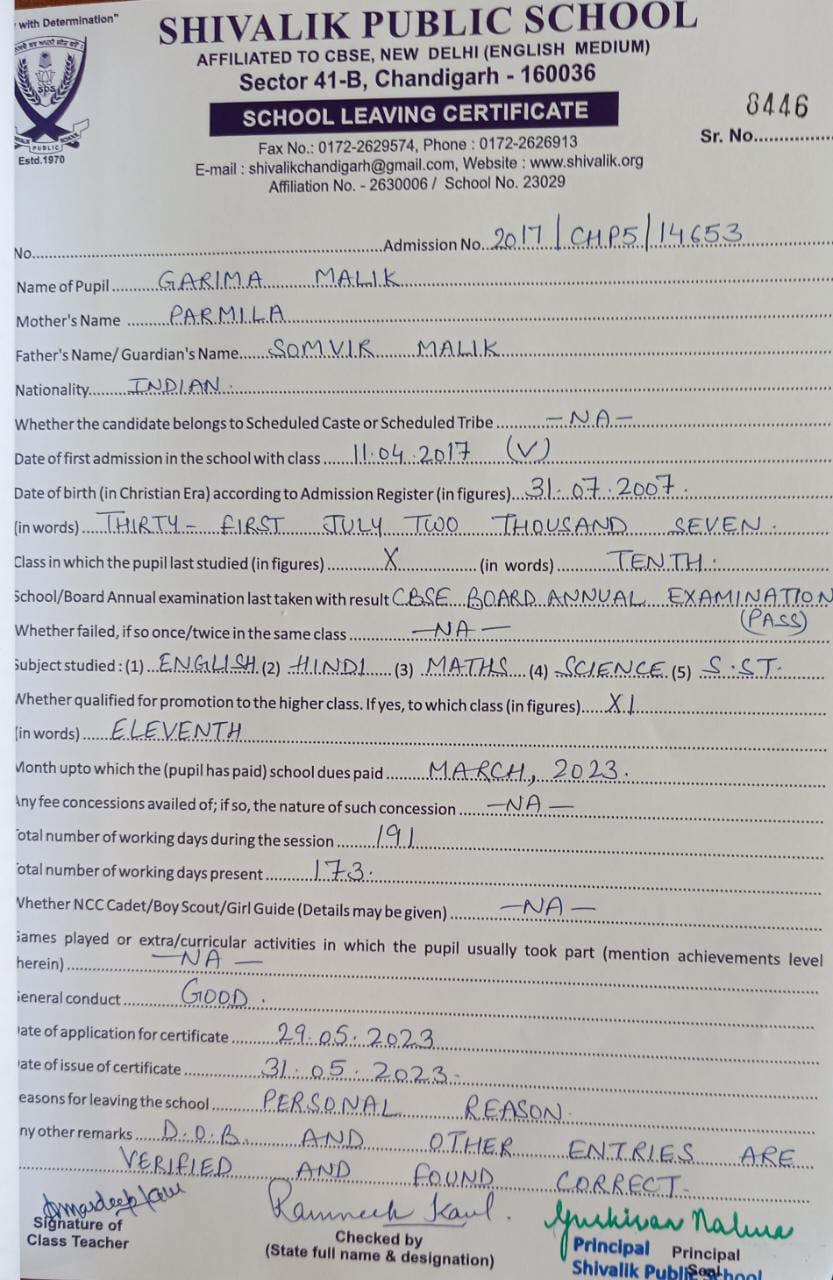 with Determination"
SHIVALIK PUBLIC SCHOOL
AFFILIATED TO CBSE, NEW DELHI (ENGLISH MEDIUM)
Sector 41-B, Chandigarh - 160036
SCHOOL LEAVING CERTIFICATE
8446
Sr. No..............
Fax No.: 0172-2629574, Phone : 0172-2626913
E-mail : shivalikchandigarh@gmail.com, Website : www.shivalik.org
Affiliation No. - 2630006 / School No. 23029
SPS
PUBLIC SCHOOL
Estd.1970
No.......... Admission No. 2017/CHPS/14653
Name of Pupil GARIMA MALIK
Mother's Name PARMILA
Father's Name/ Guardian's Name SOMVIR MALIK
Nationality INDIAN.
Whether the candidate belongs to Scheduled Caste or Scheduled Tribe -NA-
Date of first admission in the school with class 11.04.2017 (V)
Date of birth (in Christian Era) according to Admission Register (in figures) 31.07.2007.
(in words) THIRTY-FIRST JULY TWO THOUSAND SEVEN.
Class in which the pupil last studied (in figures) X (in words) TENTH.
School/Board Annual examination last taken with result CBSE BOARD ANNUAL EXAMINATION
(PASS)
Whether failed, if so once/twice in the same class -NA-
Subject studied : (1) ENGLISH (2) HINDI (3) MATHS (4) SCIENCE (5) S.ST.
Whether qualified for promotion to the higher class. If yes, to which class (in figures) XI
(in words) ELEVENTH
Month upto which the (pupil has paid) school dues paid MARCH, 2023.
Any fee concessions availed of; if so, the nature of such concession -NA-
Total number of working days during the session 191
Total number of working days present 173.
Whether NCC Cadet/Boy Scout/Girl Guide (Details may be given) -NA-
Games played or extra/curricular activities in which the pupil usually took part (mention achievements level
herein) -NA-
General conduct GOOD.
ate of application for certificate 29.05.2023
ate of issue of certificate 31.05.2023-
easons for leaving the school PERSONAL REASON.
ny other remarks D.O.B. AND OTHER ENTRIES ARE
VERIFIED AND FOUND CORRECT.
Signature of
Class Teacher
Ramneek Kaul.
Checked by
(State full name & designation)
Principal
Principal
Seal
Shivalik Public School